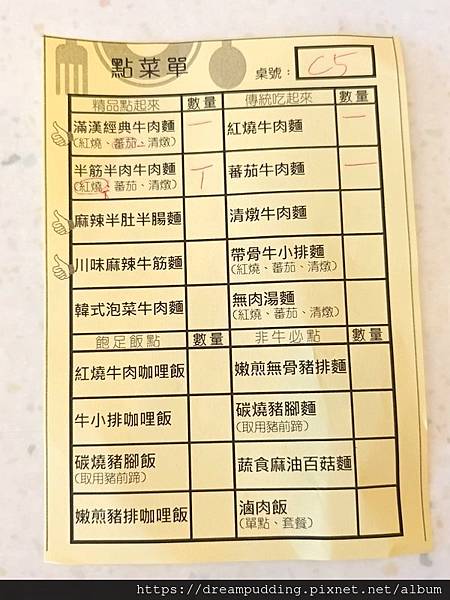 點菜單
桌號：C5
精品點起來 數量 傳統吃起來 數量
滿漢經典牛肉麵 一 紅燒牛肉麵 一
(紅燒、番茄、清燉)
半筋半肉牛肉麵 T 蕃茄牛肉麵 一
(紅燒、蕃茄、清燉)
麻辣半肚半腸麵 清燉牛肉麵
川味麻辣牛筋麵 帶骨牛小排麵
(紅燒、蕃茄、清燉)
韓式泡菜牛肉麵 無肉湯麵
(紅燒、蕃茄、清燉)
飽足飯點 數量 非牛必點 數量
紅燒牛肉咖哩飯 嫩煎無骨豬排麵
牛小排咖哩飯 碳燒豬腳麵
(取用豬前蹄)
碳燒豬腳飯 蔬食麻油百菇麵
(取用豬前蹄)
嫩煎豬排咖哩飯 滷肉飯
(單點、套餐)
https://dreampudding.pixnet.net/album